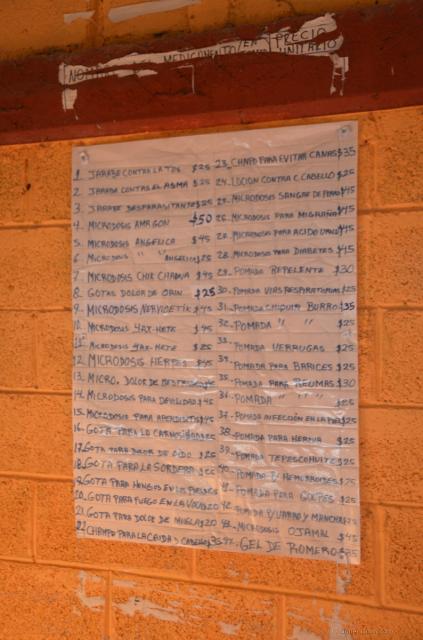 MEDICAMENTO/EN PRECIO
UNITARIO
1. JARABE CONTRA LA TOS $25
2. JARABE CONTRA EL ASMA $25
3. JARABE DESPARASITANTE $25
4. MICRODOSIS $50
5. MICRODOSIS ANGELICA $45
6. MICRODOSIS " " $25
7. MICRODOSIS $45
8. GOTAS DOLOR DE ORIN $25
9. MICRODOSIS $45
10. MICRODOSIS YAX-HETE $45
11. MICRODOSIS YAX-HETE $25
12. MICRODOSIS HERPES
13. MICRO. DOLOR DE
14. MICRODOSIS PARA DEBILIDAD $45
15. MICRODOSIS PARA $45
16. GOTA PARA LO
17. GOTA PARA DOLOR DE OIDO $25
18. GOTA PARA LA SORDERA
19. GOTA PARA HONGOS EN LA
20. GOTA PARA FUEGO EN LA
21. GOTA PARA DOLOR DE MUELA $20
22. CHAMPO PARA LA CAIDA D CABELLO $35
23. CHAMPO PARA EVITAR CANAS $35
24. LOCION CONTRA C. CABELLO $25
25. MICRODOSIS SANGRE DE $45
26. MICRODOSIS PARA MIGRAÑA $45
27. MICRODOSIS PARA ACIDO URICO $45
28. MICRODOSIS PARA DIABETES $45
29. POMADA REPELENTE $30
30. POMADA VIAS RESPIRATORIAS $25
31. POMADA BURRO $35
32. POMADA " " $25
33. POMADA VERRUGAS $25
34. POMADA PARA BARICES $25
35. POMADA PARA REUMAS $30
36. POMADA " " $25
37. POMADA INFECCIÓN EN LA PIEL $25
38. POMADA PARA HERNIA $25
39. POMADA TEPESCOHUITE $25
40. POMADA P/ HEMOROIDES $25
41. POMADA PARA GOLPES $25
42. POMADA P/ BARRO Y MANCHA $25
43. MICRODOSIS OJAMAL $45
GEL DE ROMERO